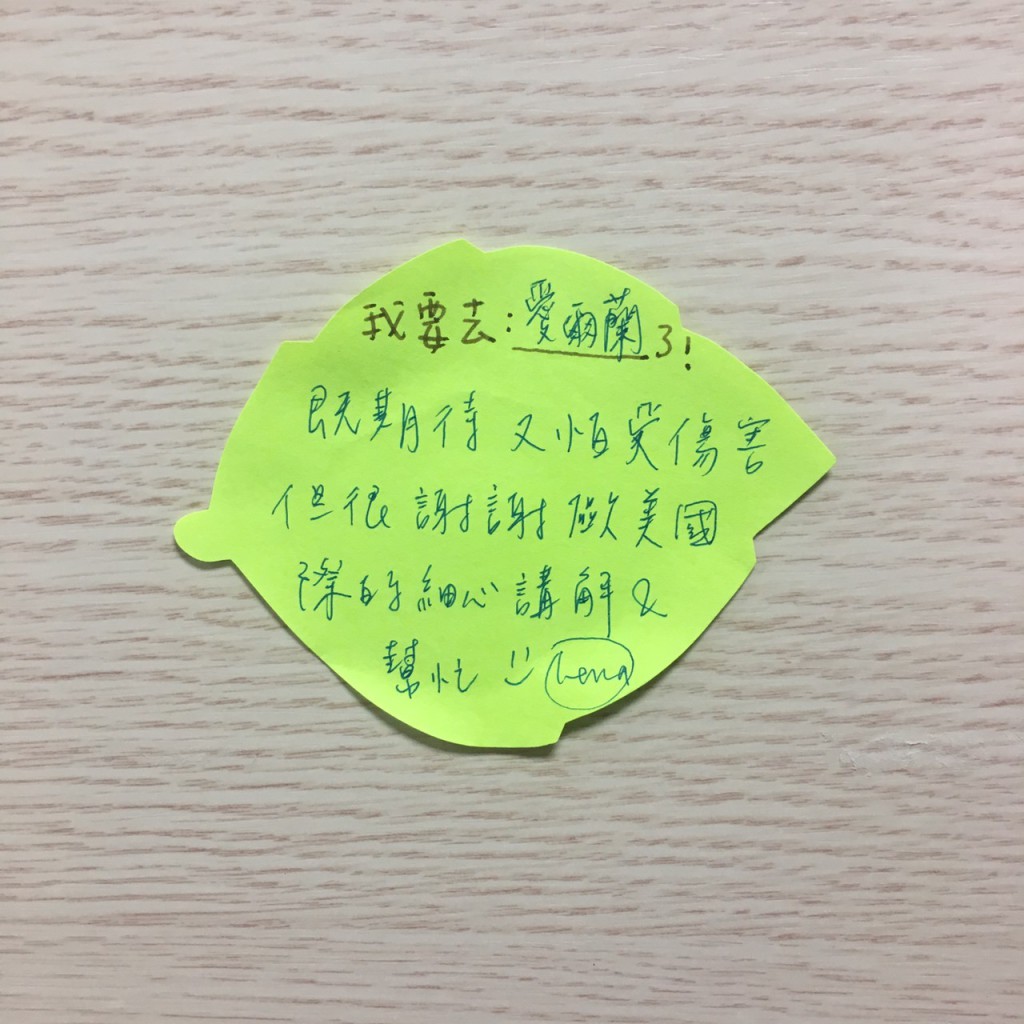 我要去:愛爾蘭了!
既期待又怕受傷害
但很謝謝歐美國
際的細心講解&
幫忙 :)